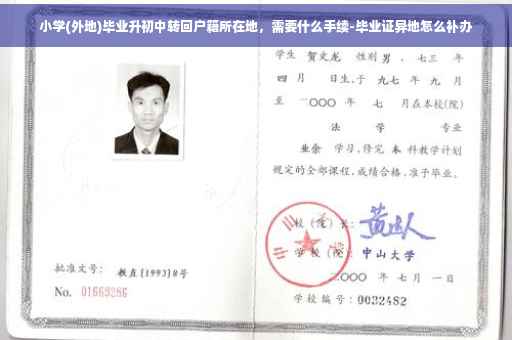 小学(外地)毕业升初中转回户籍所在地，需要什么手续-毕业证异地怎么补办
学生 贺文龙 性别 男 、七三 年
四 月 日生,于 九七 年 九 月
至 二〇〇〇 年 七 月在本校(院)
法 学 专业
业余 学习,修完 本 科教学计划
规定的全部课程,成绩合格,准予毕业。
校(院)长:
学 校(院): 中山大学
二〇〇〇 年 七 月 一 日
批准文号: 教直[1993]8号
No. 01669286
学校编号: 0032482